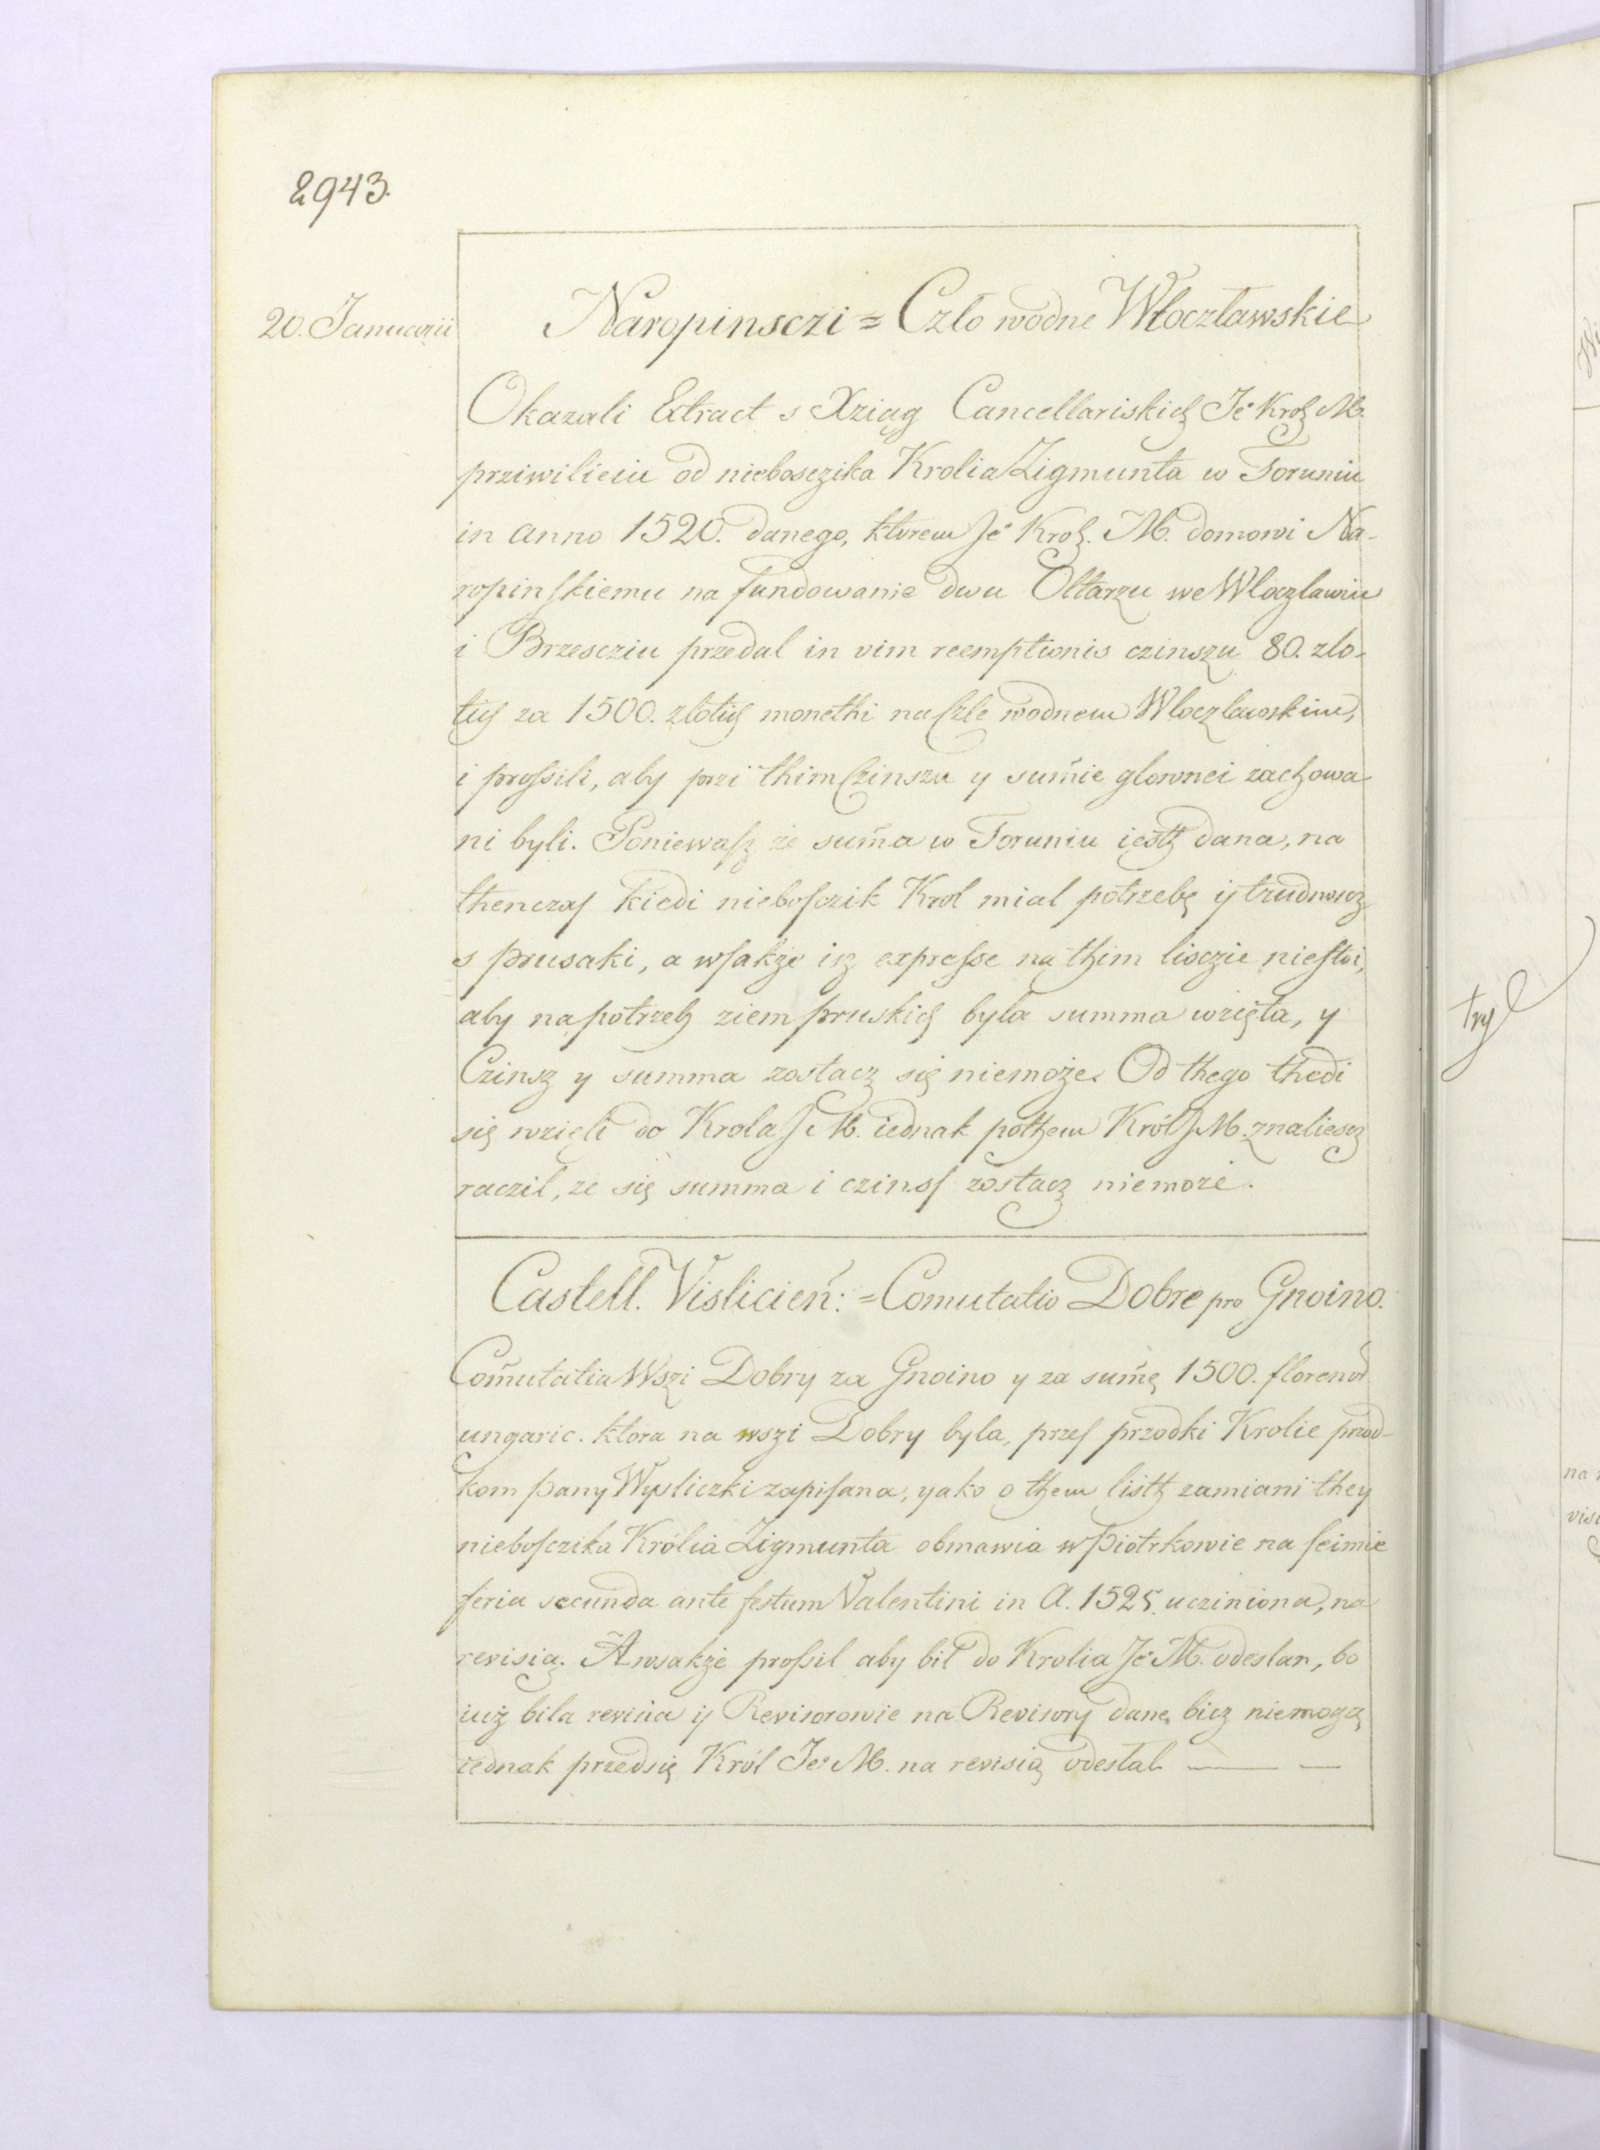 2943.
20. Januarii
Naropinsczi = Czło wodne Włoczławskie
Okazali Extract s Xziąg Cancellariskich Je° Kroḻ M.
prziwilieiu od nieboszczika Krolia Zigmunta w Toruniu
in anno 1520. danego, kturem Je° Kroḻ. M. domowi Na-
ropinskiemu na fundowanie dwu Ołtarzu we Wloczlawiu
i Brzescziu przedal in vim reemptionis czinszu 80. zlo-
tich za 1500. zlotich monethi na Cżle wodnem Wloczlawskim,
i prossili, aby przi thim Czinszu y sum̃ie glownei zachowa
ni byli. Poniewasz że sum̃a w Toruniu iesth dana, na
thenczas kiedi niebosczik Krol mial potrzebę ij trudnoscz
s prusaki, a wsakże isz expresse na thim liscżie niestoi,
aby na potrzeb ziem pruskich była summa wzięta, y
Czinsz y summa zostacz się niemoże. Od thego thedi
się wzięli do Krola J M. iednak pothem Król J M. znaliescz
raczil, ze się summa i czins zostacz niemoże.
Castell. Vislicień: = Comutatio Dobre pro Gnoino.
Com̃utatia Wszi Dobry za Gnoino y za sum̃ę 1500. florenor̃
ungaric. ktora na wszi Dobry byla, przes przodki Krolie przod-
kom pany Wysliczki zapisana, yako o them listh zamiani they
nieboscżika Królia Zigmunta obmawia w Piotrkowie na seimie
feria secunda ante festum Valentini in A. 1525. ucziniona, na
revisią. A wsakże prossil aby bił do Krolia Je° M. odeslan, bo
iuż bila revisia ij Revisorowie na Revisory dane bicz niemogą
iednak przedsię Król Je° M. na revisią odesłal.